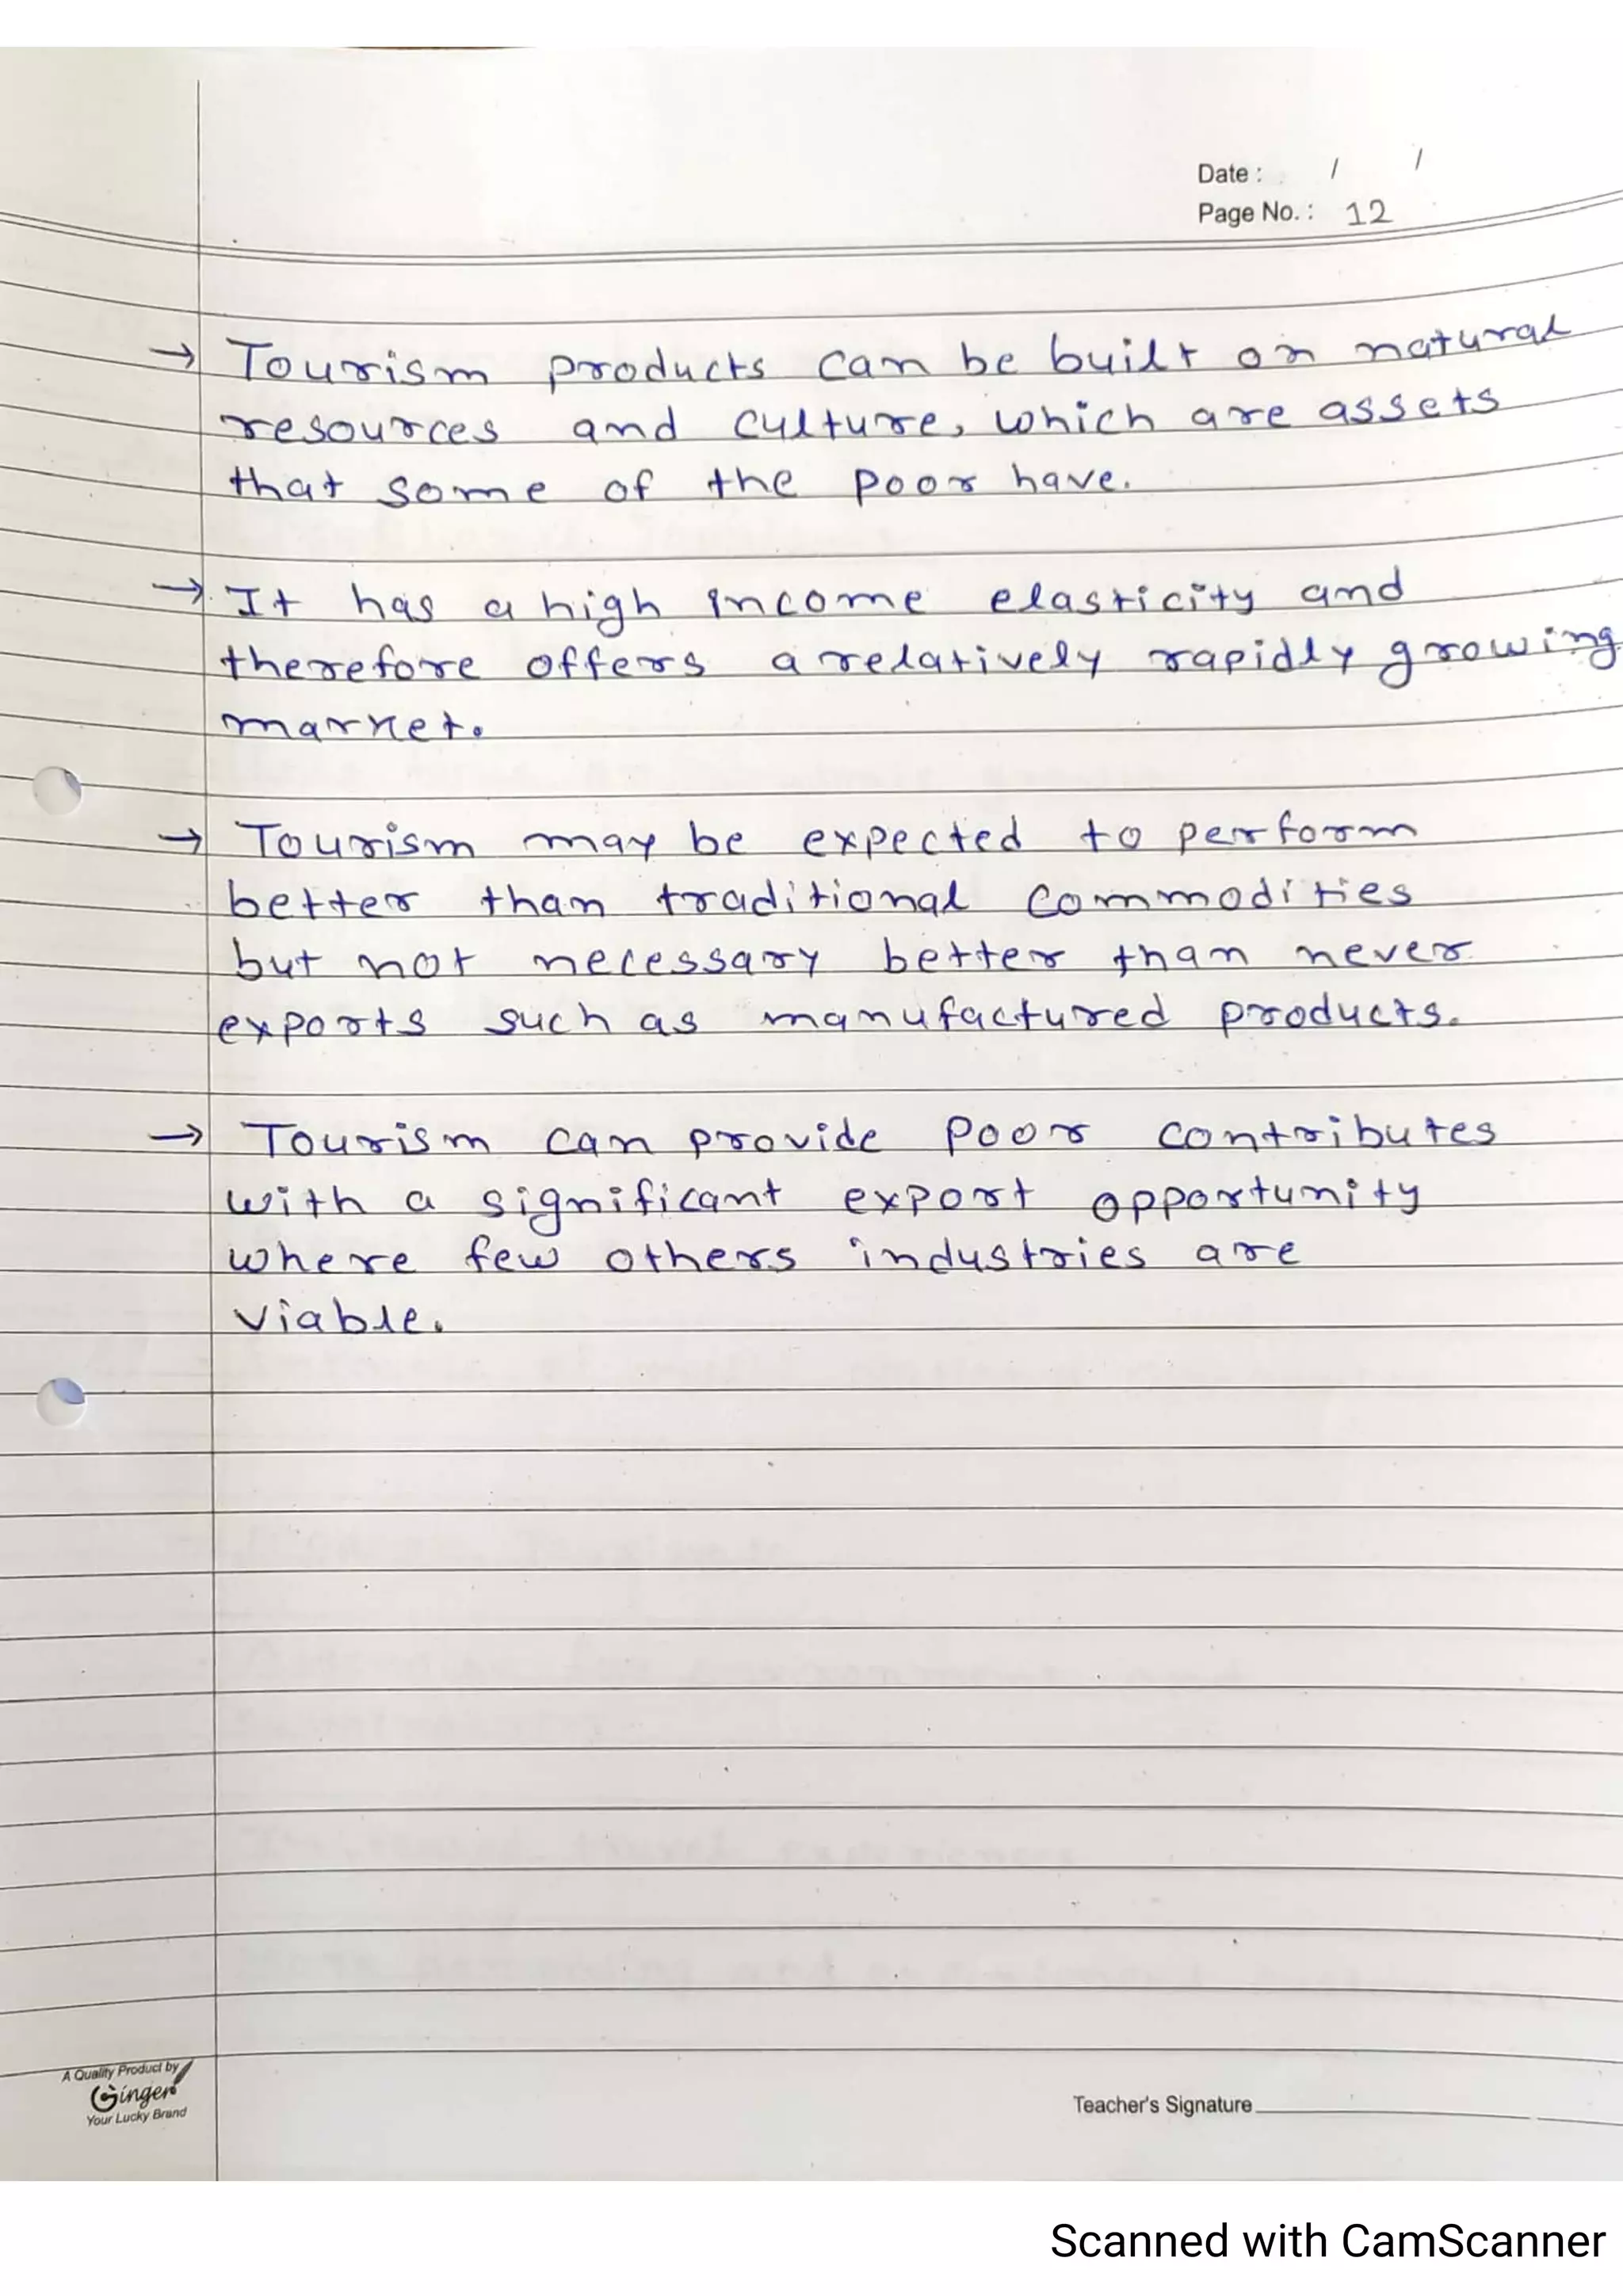 Date : / /
Page No. : 12
→ Tourism products can be built on natural
resources and culture, which are assets
that some of the poor have.
→ It has a high income elasticity and
therefore offers a relatively rapidly growing
market.
→ Tourism may be expected to perform
better than traditional commodities
but not necessary better than never
exports such as manufactured products.
→ Tourism can provide poor contributes
with a significant export opportunity
where few others industries are
viable.
A Quality Product by
Ginger
Your Lucky Brand
Teacher's Signature
Scanned with CamScanner